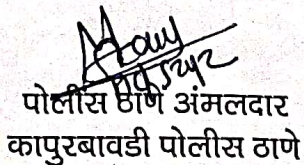 पोलीस ठाणे अंमलदार
कापुरबावडी पोलीस ठाणे